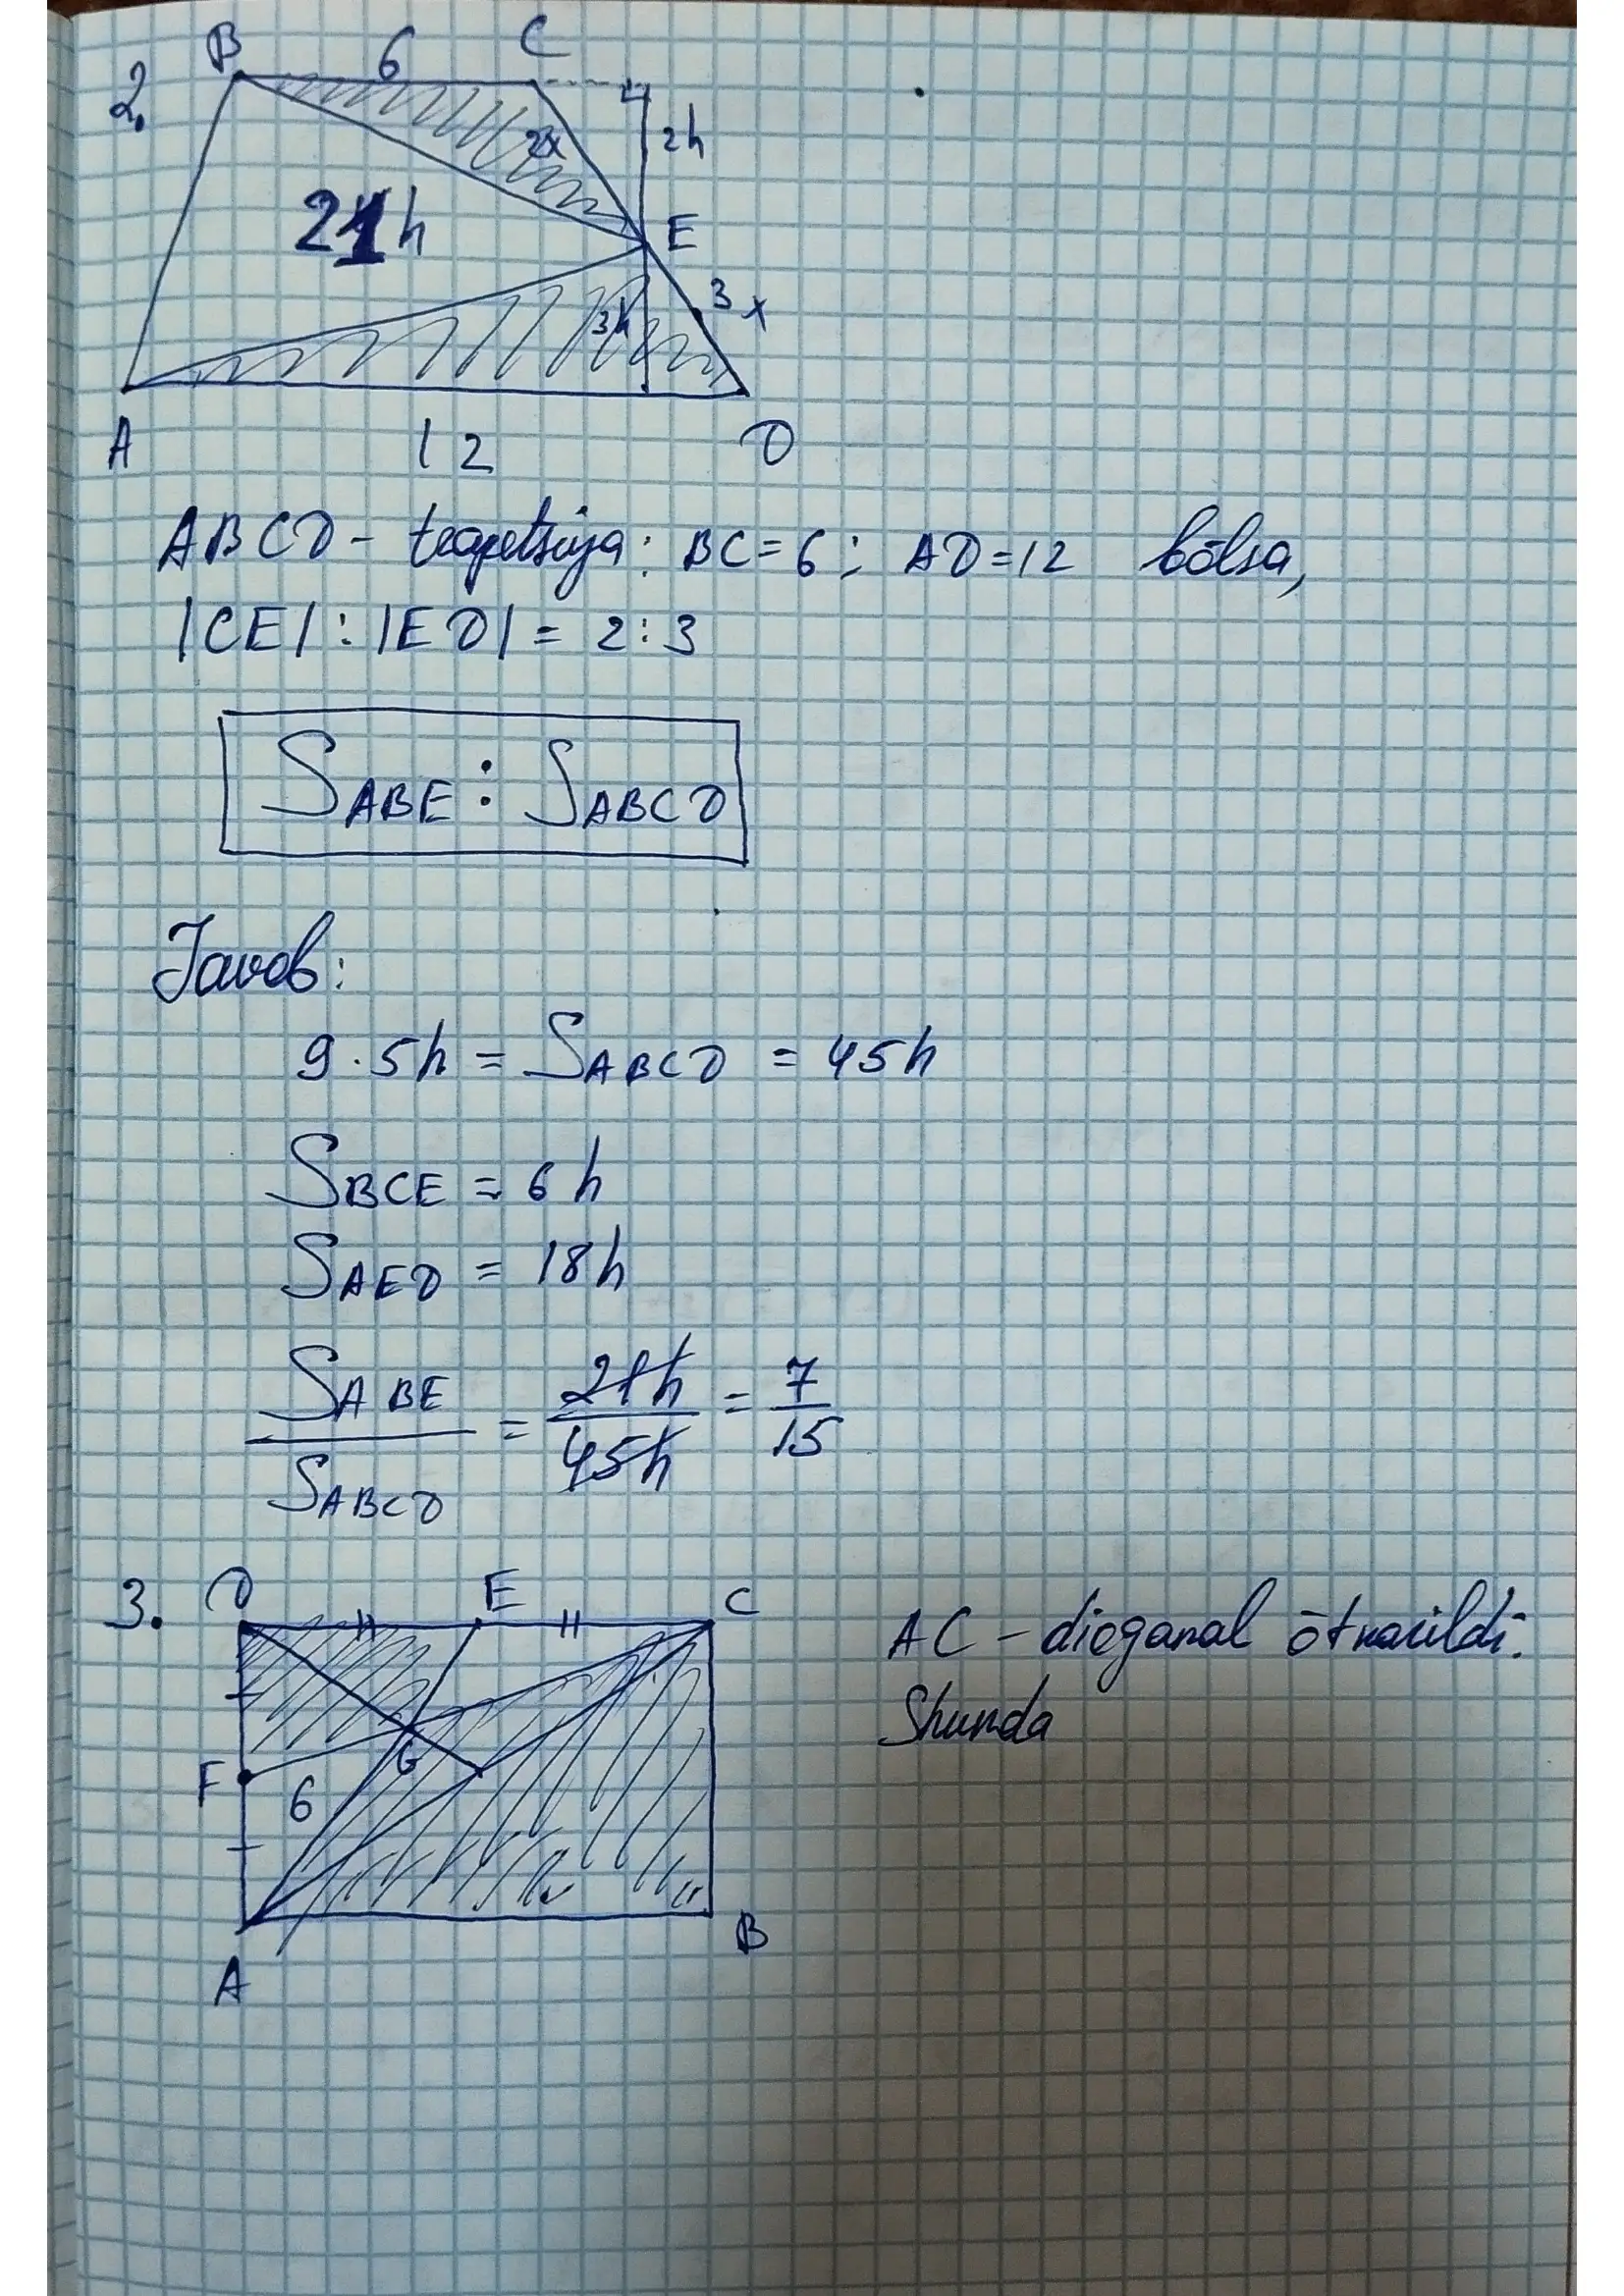 2.
B 6 C
2x 2h
21h
E
3h 3x
A 12 D
ABCD - trapetsiya: BC=6; AD=12 bōlsa,
|CE| : |ED| = 2:3
SABE : SABCD
Javob:
9·5h = SABCD = 45h
SBCE = 6h
SAED = 18h
SABE/SABCD = 21h/45h = 7/15
3. D E C
AC - dioganal ōtkazildi.
Shunda
F 6 G
A B